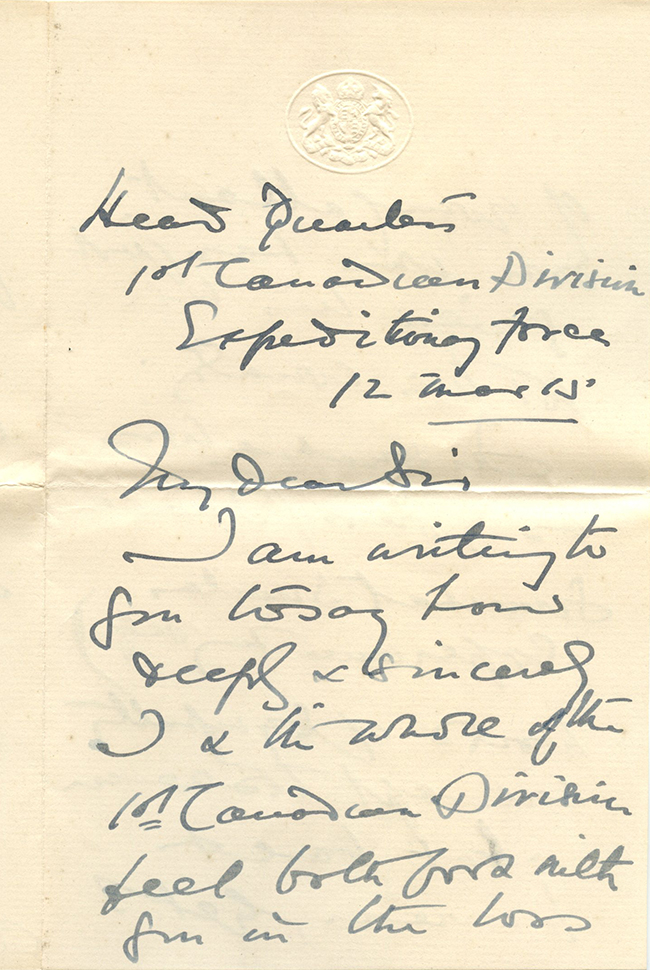 Head Quarters
1st Canadian Division
Expeditionary Force
12 Mar 15
My dear Sir
I am writing to
you to say how
deeply & sincerely
I & the whole of the
1st Canadian Division
feel both for & with
you in the loss